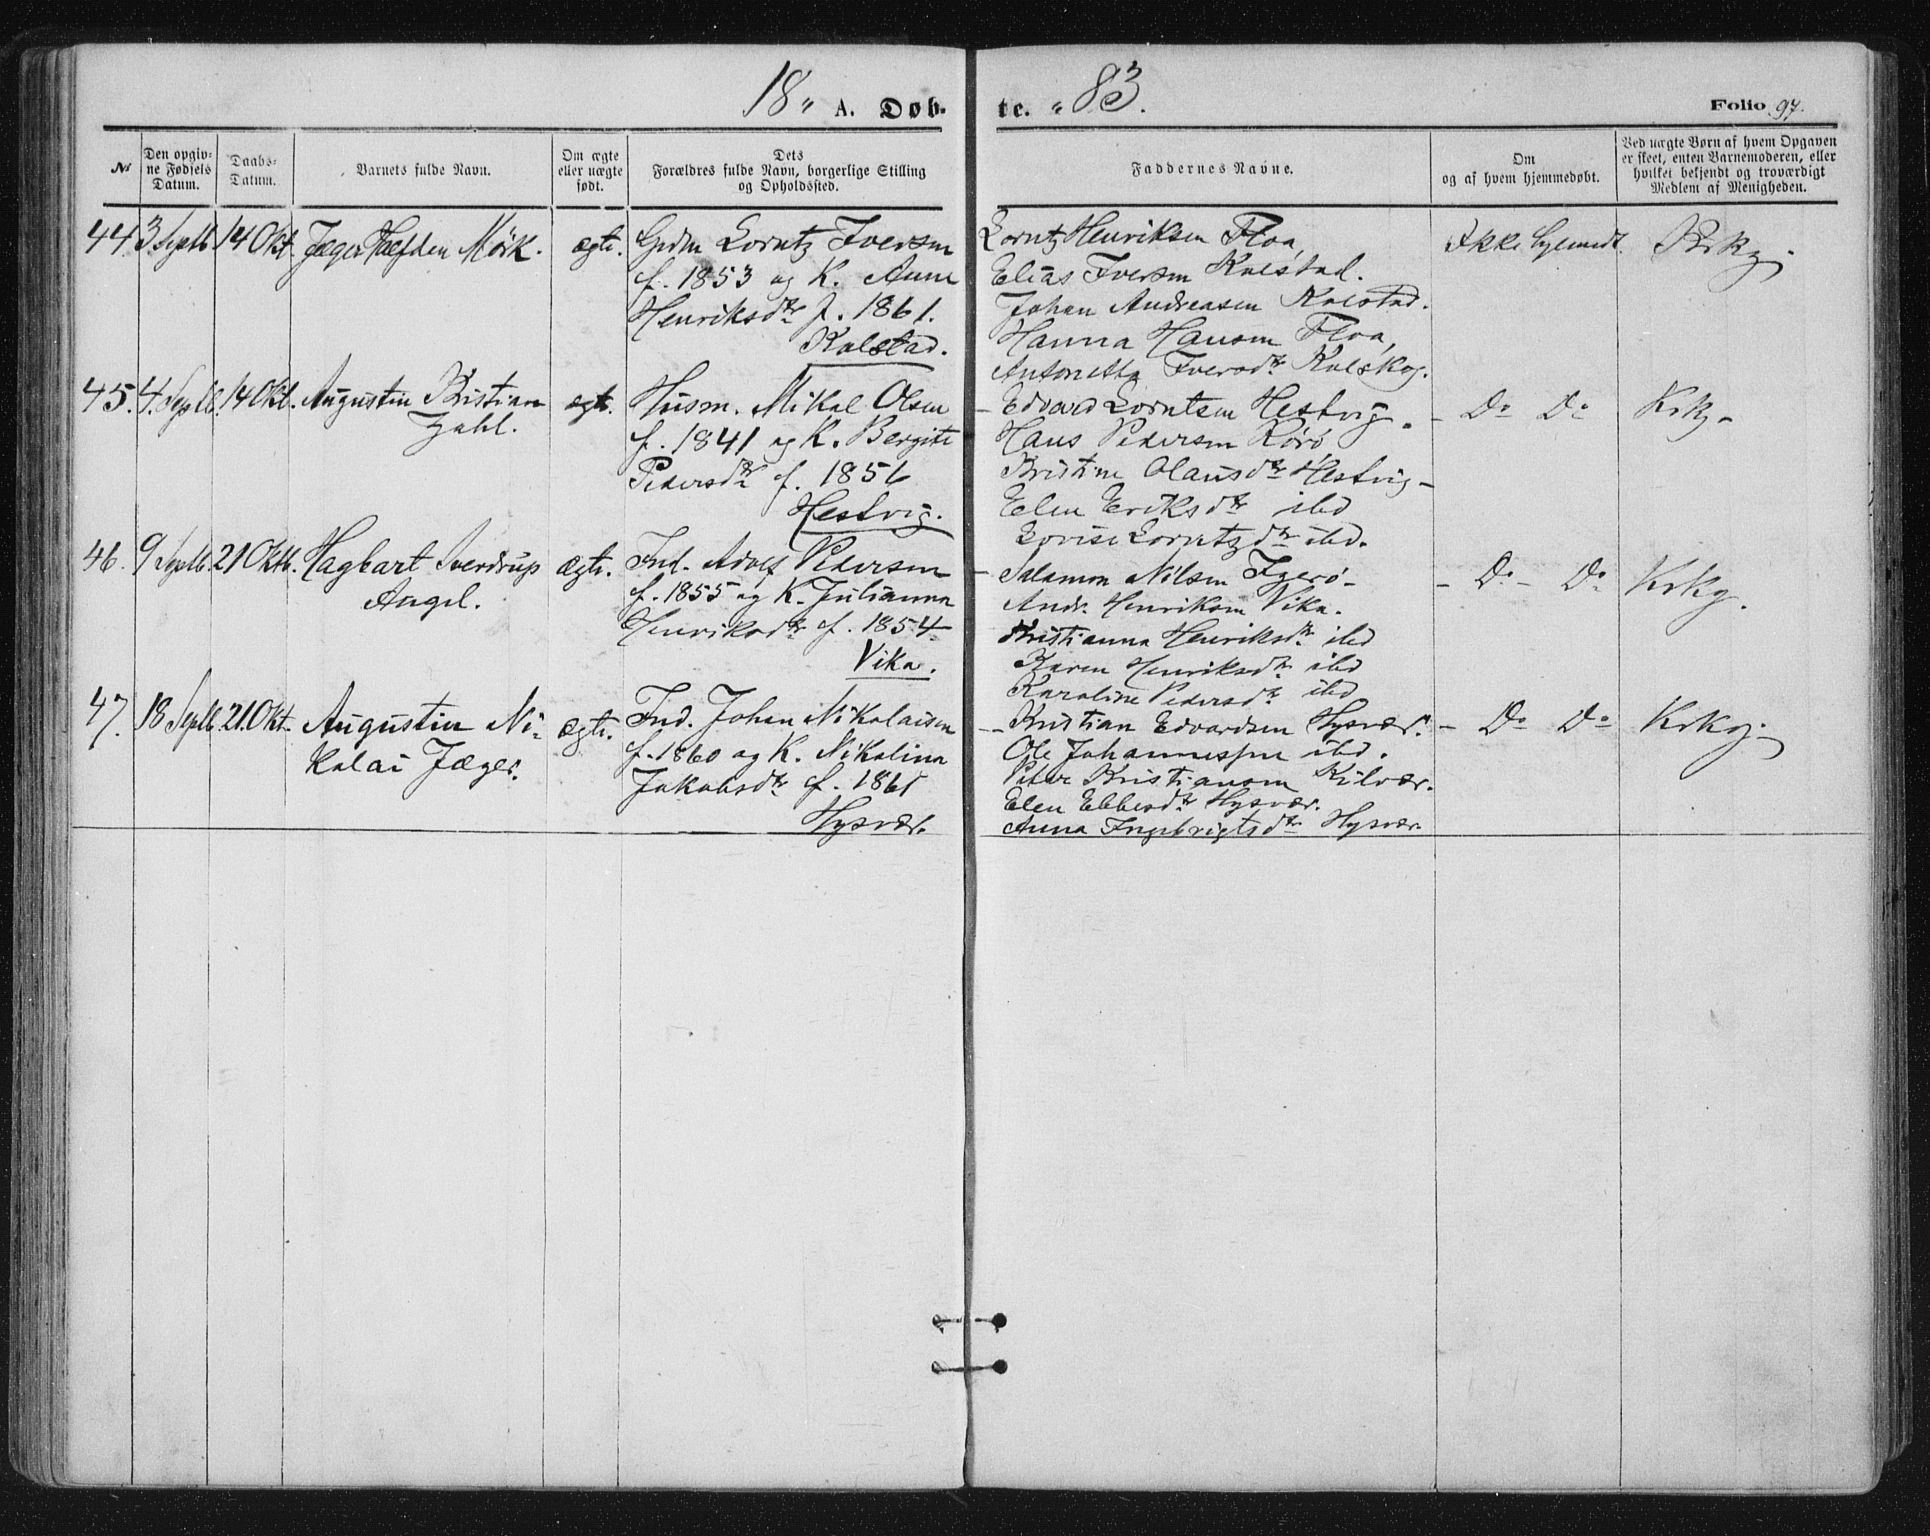 18 " A. Døb-
te. " 83.
Folio 97.
№
Den opgiv-
ne Fødsels
Datum.
Daabs-
Datum.
Barnets fulde Navn.
Om ægte
eller uægte
født.
Dets
Forældres fulde Navn, borgerlige Stilling
og Opholdssted.
Faddernes Navne.
Om
og af hvem hjemmedøbt.
Ved uægte Børn af hvem Opgaven
er skeet, enten Barnemoderen, eller
hvilket bekjendt og troværdigt
Medlem af Menigheden.
44. 3 Septb. 14 Okt. Jæger Hefden Mörk. ægte.
Grdm Lorntz Iversen
f. 1853 og K. Anne
Henriksdtr f. 1861.
Kolstad.
Lorntz Henriksen Floa,
Elias Iversen Kolstad.
Johan Andreasen Kolstad.
Hanna Hansen Floa,
Antonetta Iversdtr Kolskog.
Ikke hjemmedt. Krkg.
45. 4. Septb. 14 Okt. Augustin Kristian
Zahl.
ægte.
Husm. Mikal Olsen
f. 1841 og K. Bergite
Pedersdtr f. 1856
Hestvig.
- Edvard Lorntsen Hestvig.
Hans Pedersen Rörö
Kristine Olausdtr Hestvig -
Elen Eriksdtr ibd
Lovise Lorntzdtr ibd.
- Do Do Krkg -
46. 9 Septb. 21 Oktb. Hagbart Sverdrup
Angel.
ægte.
Ind. Adolf Pedersen
f. 1855 og K. Julianna
Henriksdtr f. 1854
Vika.
- Salamon Nilsen Igerö -
Andr. Henriksen Vika.
Kristianna Henriksdtr ibd
Karen Henriksdtr ibd
Karoline Pedersdtr ibd
- Do - Do Krkg.
47. 18 Septb. 21. Okt. Augustin Ni-
kolai Jæger.
ægte.
Ind. Johan Nikolaisen
f. 1860 og K. Nikolina
Jakobsdtr f. 1861
Hysvær.
- Kristian Edvardsen Hysvær.
Ole Johannessen ibd.
Peter Kristiansen Kilvær.
Elen Ebbesdtr Hysvær.
Anna Ingebrigtsdtr Hysvær.
- Do Do Krkg.